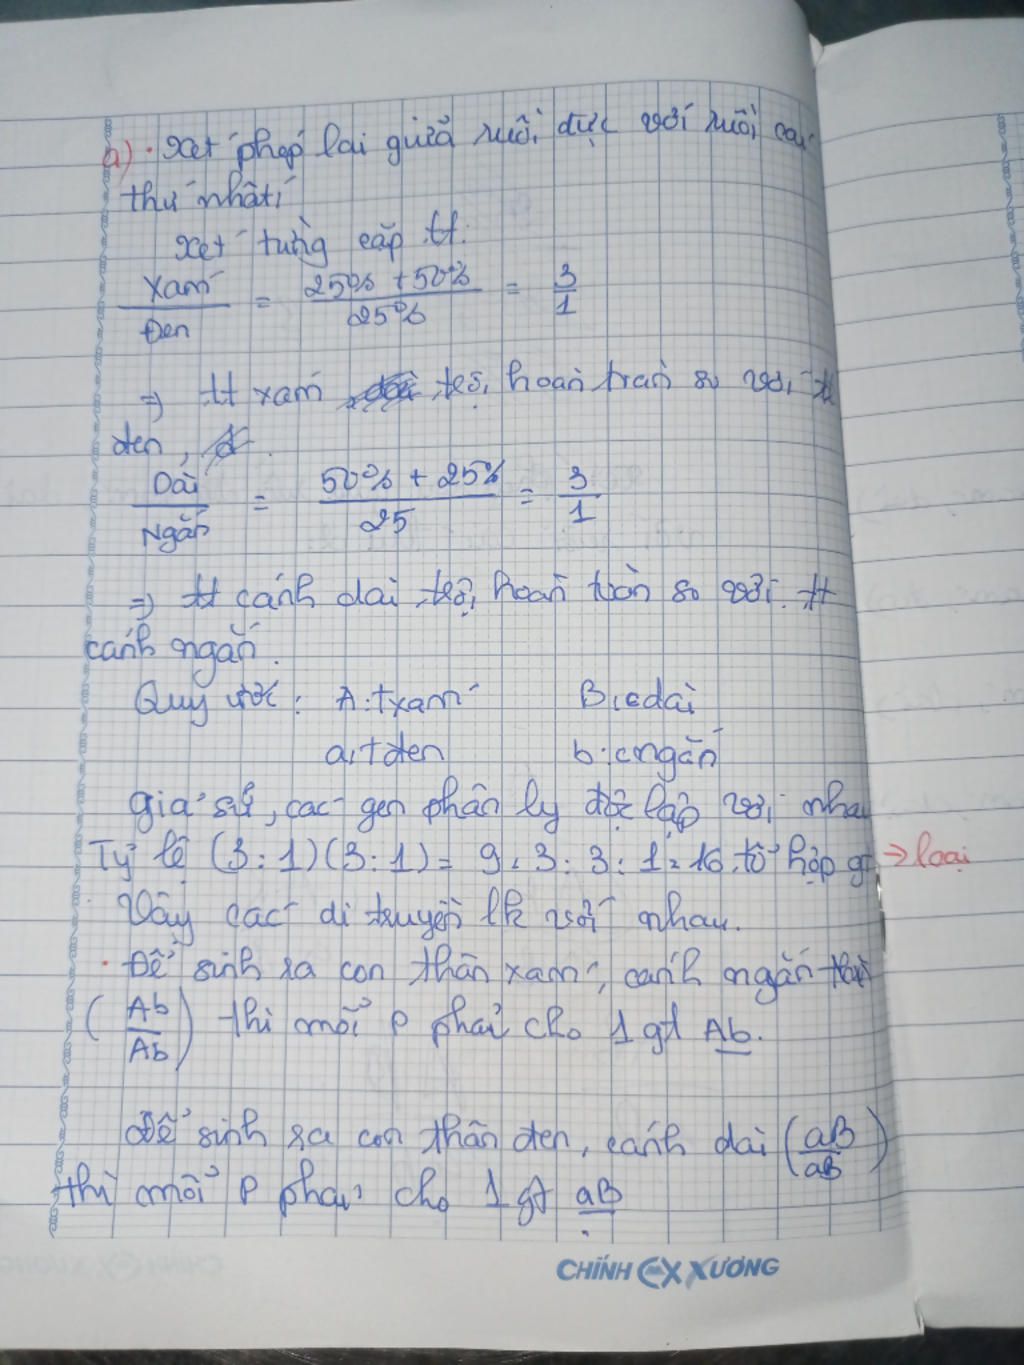 a). Xét phép lai giữa ruồi đực với ruồi cái
thứ nhất:
Xét từng cặp tt:
Xám / Đen = 25% + 50% / 25% = 3/1
=> tt xám trội hoàn toàn so với tt
đen,
Dài / Ngắn = 50% + 25% / 25 = 3/1
=> tt cánh dài trội hoàn toàn so với tt
cánh ngắn.
Quy ước: A: txám B: cdài
a: tđen b: cngắn
giả sử, các gen phân ly độc lập với nhau
Tỷ lệ (3:1)(3:1) = 9:3:3:1 = 16 tổ hợp gt → loại
Vậy các di truyền lk với nhau.
• Để sinh ra con thân xám, cánh ngắn thì
(Ab/Ab) thì mỗi P phải cho 1 gt Ab.
Để sinh ra con thân đen, cánh dài (aB/aB)
thì mỗi P phải cho 1 gt aB
CHÍNH EX XƯƠNG